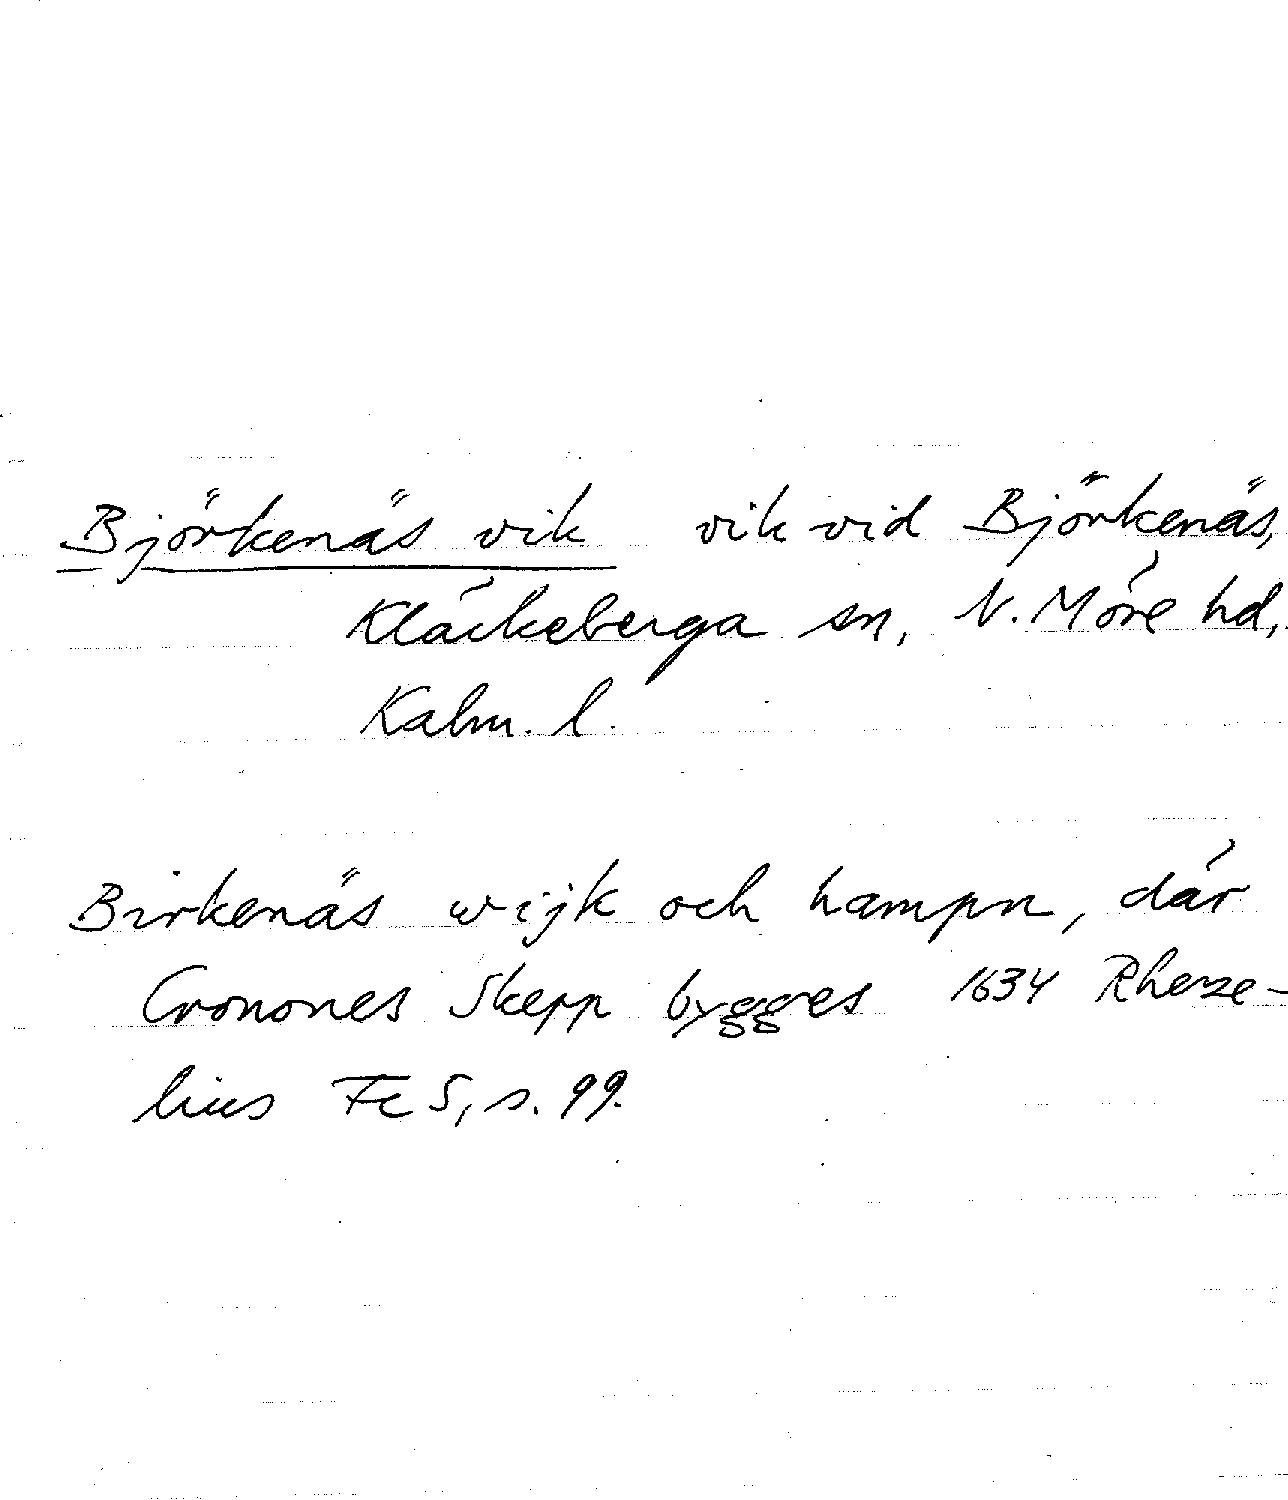 Björkenäs vik vik vid Björkenäs,
Kläckeberga sn, N. Möre hd,
Kalm. l.
Birkenäs wijk och hampn, där
Cronones Skepp bygges 1634 Rheze-
lius Fc 5, s. 99.